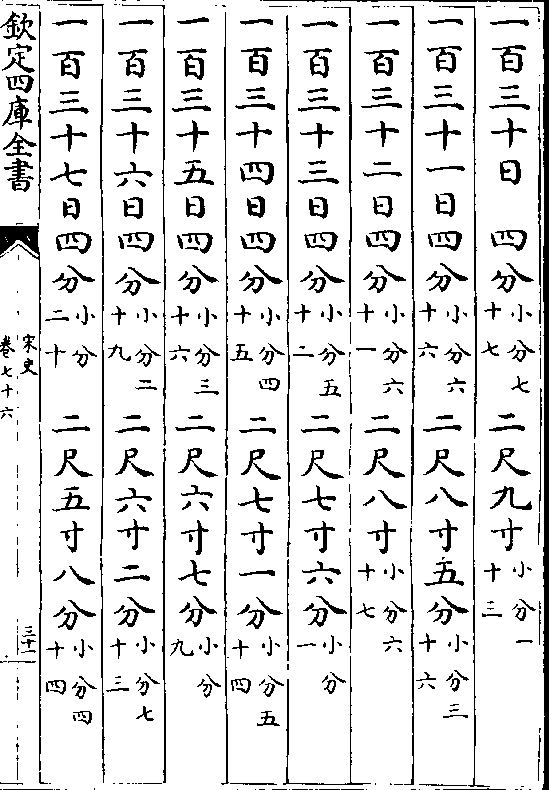 一百三十日 四分小分七十七二尺九寸小分一十三
一百三十一日四分小分六十六二尺八寸五分小分三十六
一百三十二日四分小分六十一二尺八寸小分六十七
一百三十三日四分小分五十二二尺七寸六分小分一
一百三十四日四分小分四十五二尺七寸一分小分五十四
一百三十五日四分小分三十六二尺六寸七分小分九
一百三十六日四分小分二十九二尺六寸二分小分七十三
一百三十七日四分小分二十二尺五寸八分小分四十四
欽定四庫全書
宋史
卷七十六
三十一